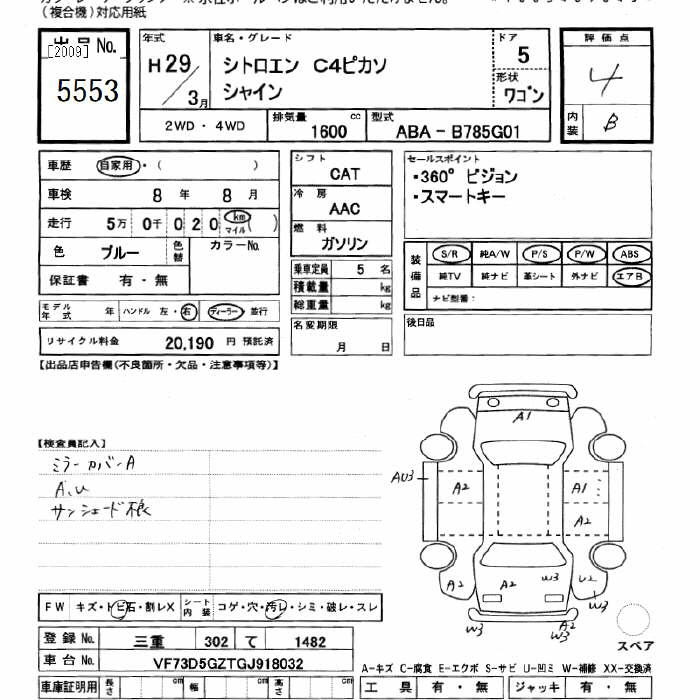 (複合機)対応用紙
出品No.
[2009]
5553
年式
H29/3月
車名・グレード
シトロエン C4ピカソ
シャイン
ドア
5
形状
ワゴン
評価点
4
内装
B
2WD・4WD
排気量
1600
cc
型式
ABA－B785G01
車歴 自家用・( )
車検 8年 8月
走行 5万 0千 0 2 0 km マイル ( )
色 ブルー 色替 カラーNo.
保証書 有・無
シフト
CAT
冷房
AAC
燃料
ガソリン
乗車定員 5 名
積載量 kg
総重量 kg
名変期限
月 日
セールスポイント
・360° ビジョン
・スマートキー
装備品
S/R 純A/W P/S P/W ABS
純TV 純ナビ 革シート 外ナビ エアB
ナビ型番:
後日品
モデル年式 年 ハンドル 左・右 ディーラー・並行
リサイクル料金 20,190 円 預託済
【出品店申告欄(不良箇所・欠品・注意事項等)】
【検査員記入】
ミラーカバーA
A,U
サンシェード
A1
AU3
A2
A1
A2
A2
A2
W3
U2
W3
W3
A2
W3
スペア
FW キズ・トビ石・割レX
シート内装 コゲ・穴・汚レ・シミ・破レ・スレ
登録No. 三重 302 て 1482
車台No. VF73D5GZTGJ918032
A−キズ C−腐食 E−エクボ S−サビ U−凹ミ W−補修 XX−交換済
車庫証明用 長さ cm 幅 cm 高さ cm
工具 有・無 ジャッキ 有・無